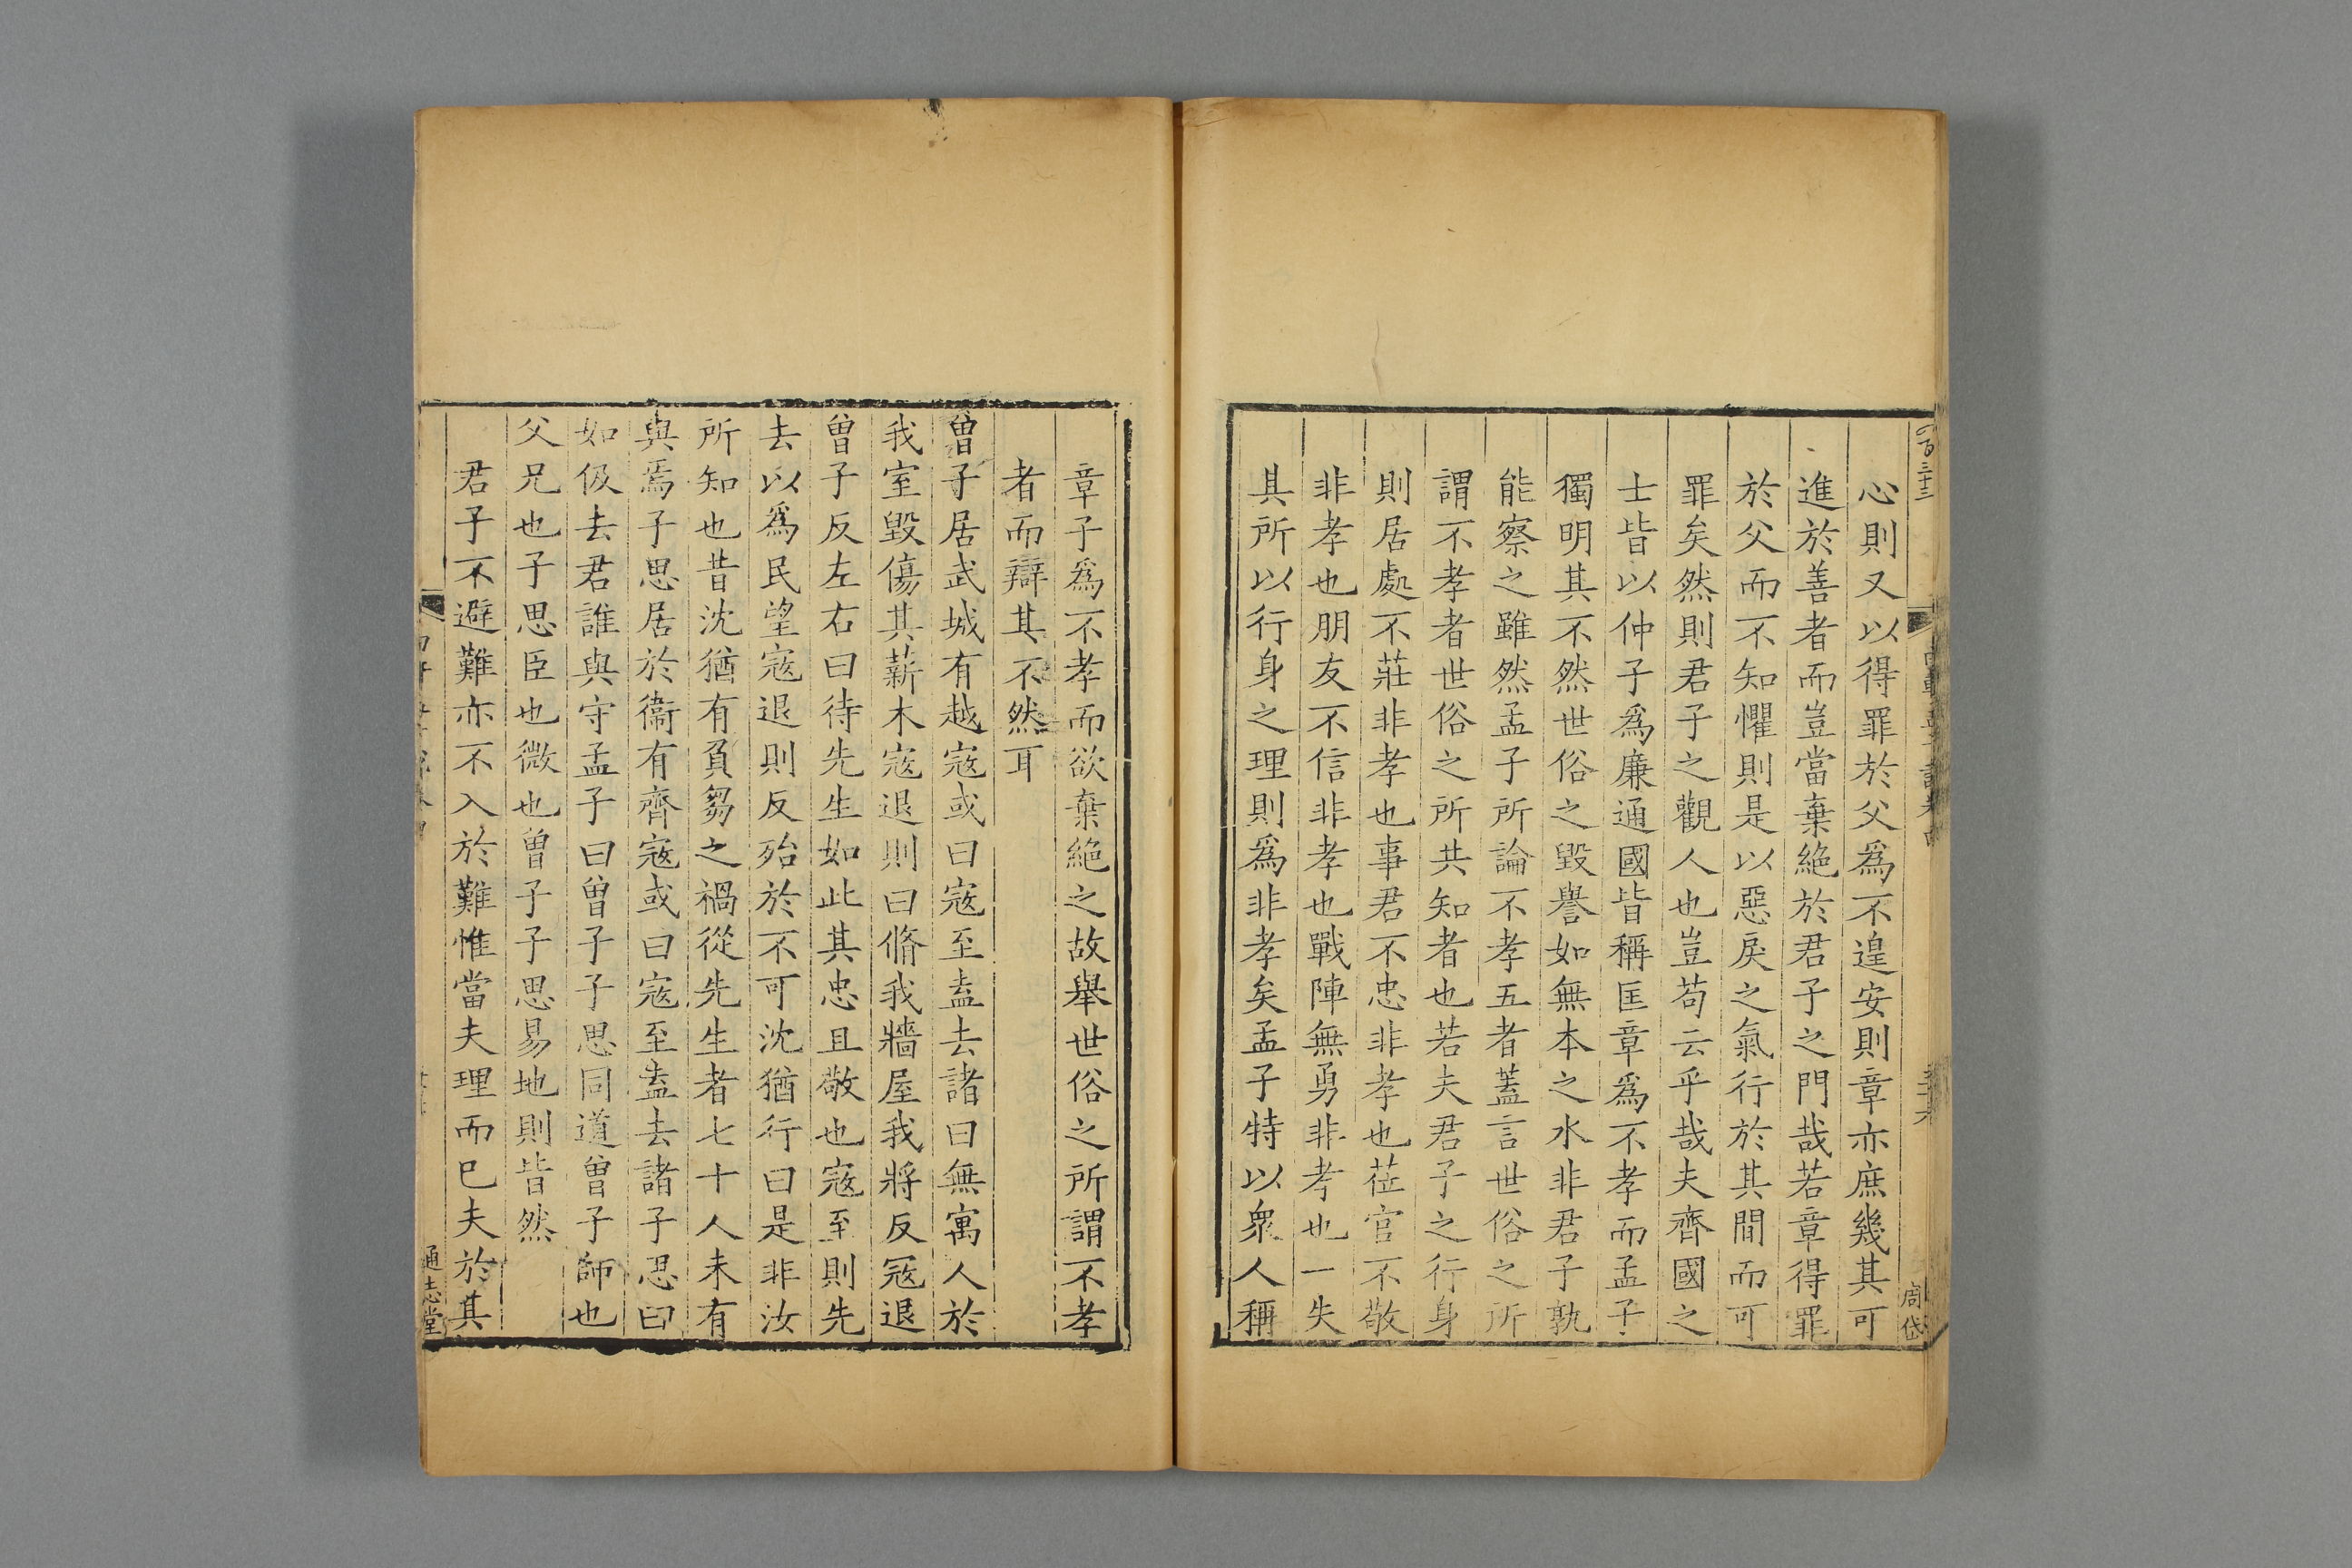 心則又以得罪於父爲不遑安則章亦庶幾其可
進於善者而豈當棄絶於君子之門哉若章得罪
於父而不知懼則是以惡戾之氣行於其間而可
罪矣然則君子之觀人也豈苟云乎哉夫齊國之
士皆以仲子爲廉通國皆稱匡章爲不孝而孟子
獨明其不然世俗之毀譽如無本之水非君子孰
能察之雖然孟子所論不孝五者蓋言世俗之所
謂不孝者世俗之所共知者也若夫君子之行身
則居處不莊非孝也事君不忠非孝也莅官不敬
非孝也朋友不信非孝也戰陣無勇非孝也一失
其所以行身之理則爲非孝矣孟子特以衆人稱
周岱
章子爲不孝而欲棄絶之故舉世俗之所謂不孝
者而辯其不然耳
曾子居武城有越寇或曰寇至盍去諸曰無寓人於
我室毀傷其薪木寇退則曰脩我牆屋我將反寇退
曾子反左右曰待先生如此其忠且敬也寇至則先
去以爲民望寇退則反殆於不可沈猶行曰是非汝
所知也昔沈猶有負芻之禍從先生者七十人未有
與焉子思居於衞有齊寇或曰寇至盍去諸子思曰
如伋去君誰與守孟子曰曾子子思同道曾子師也
父兄也子思臣也微也曾子子思易地則皆然
君子不避難亦不入於難惟當夫理而已夫於其
通志堂